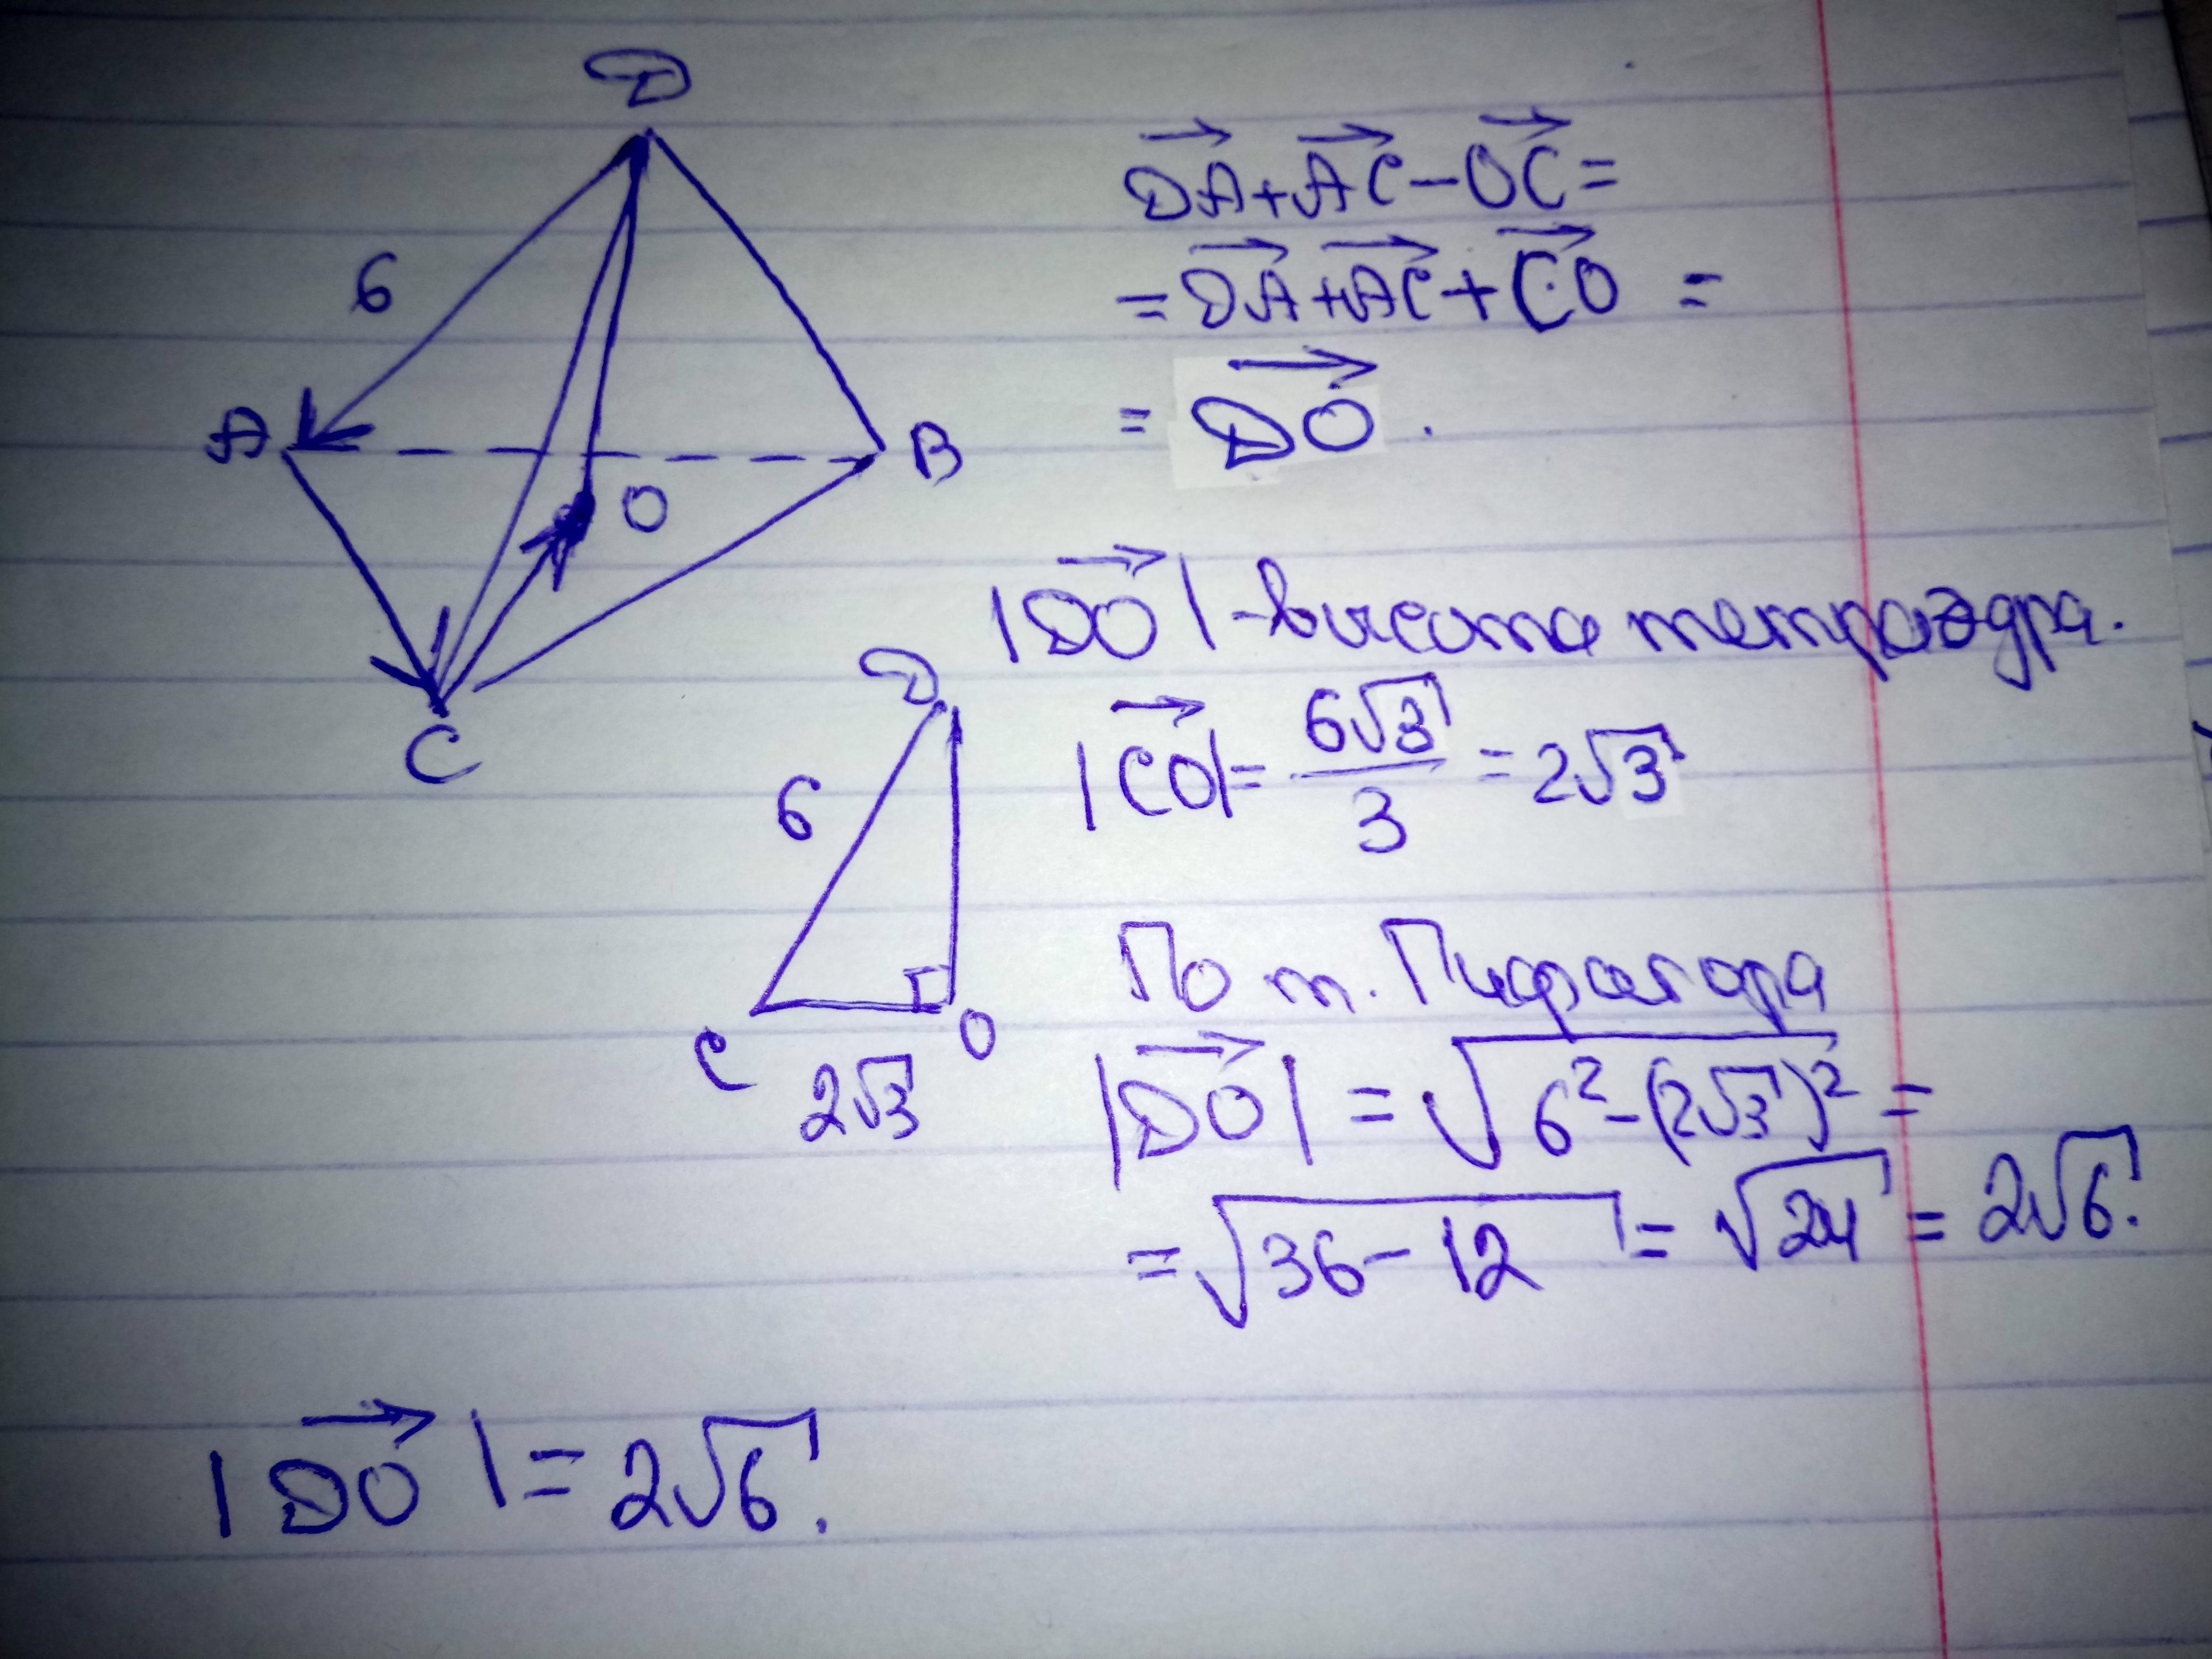 D
6
A
B
O
C
D
6
C
O
2√3
→DA + →AC − →OC =
= →DA + →AC + →CO =
= →DO.
|→DO| - высота тетраэдра.
|→CO| = 6√3/3 = 2√3
По т. Пифагора
|→DO| = √(6² − (2√3)²) =
= √(36 − 12) = √24 = 2√6.
|→DO| = 2√6.